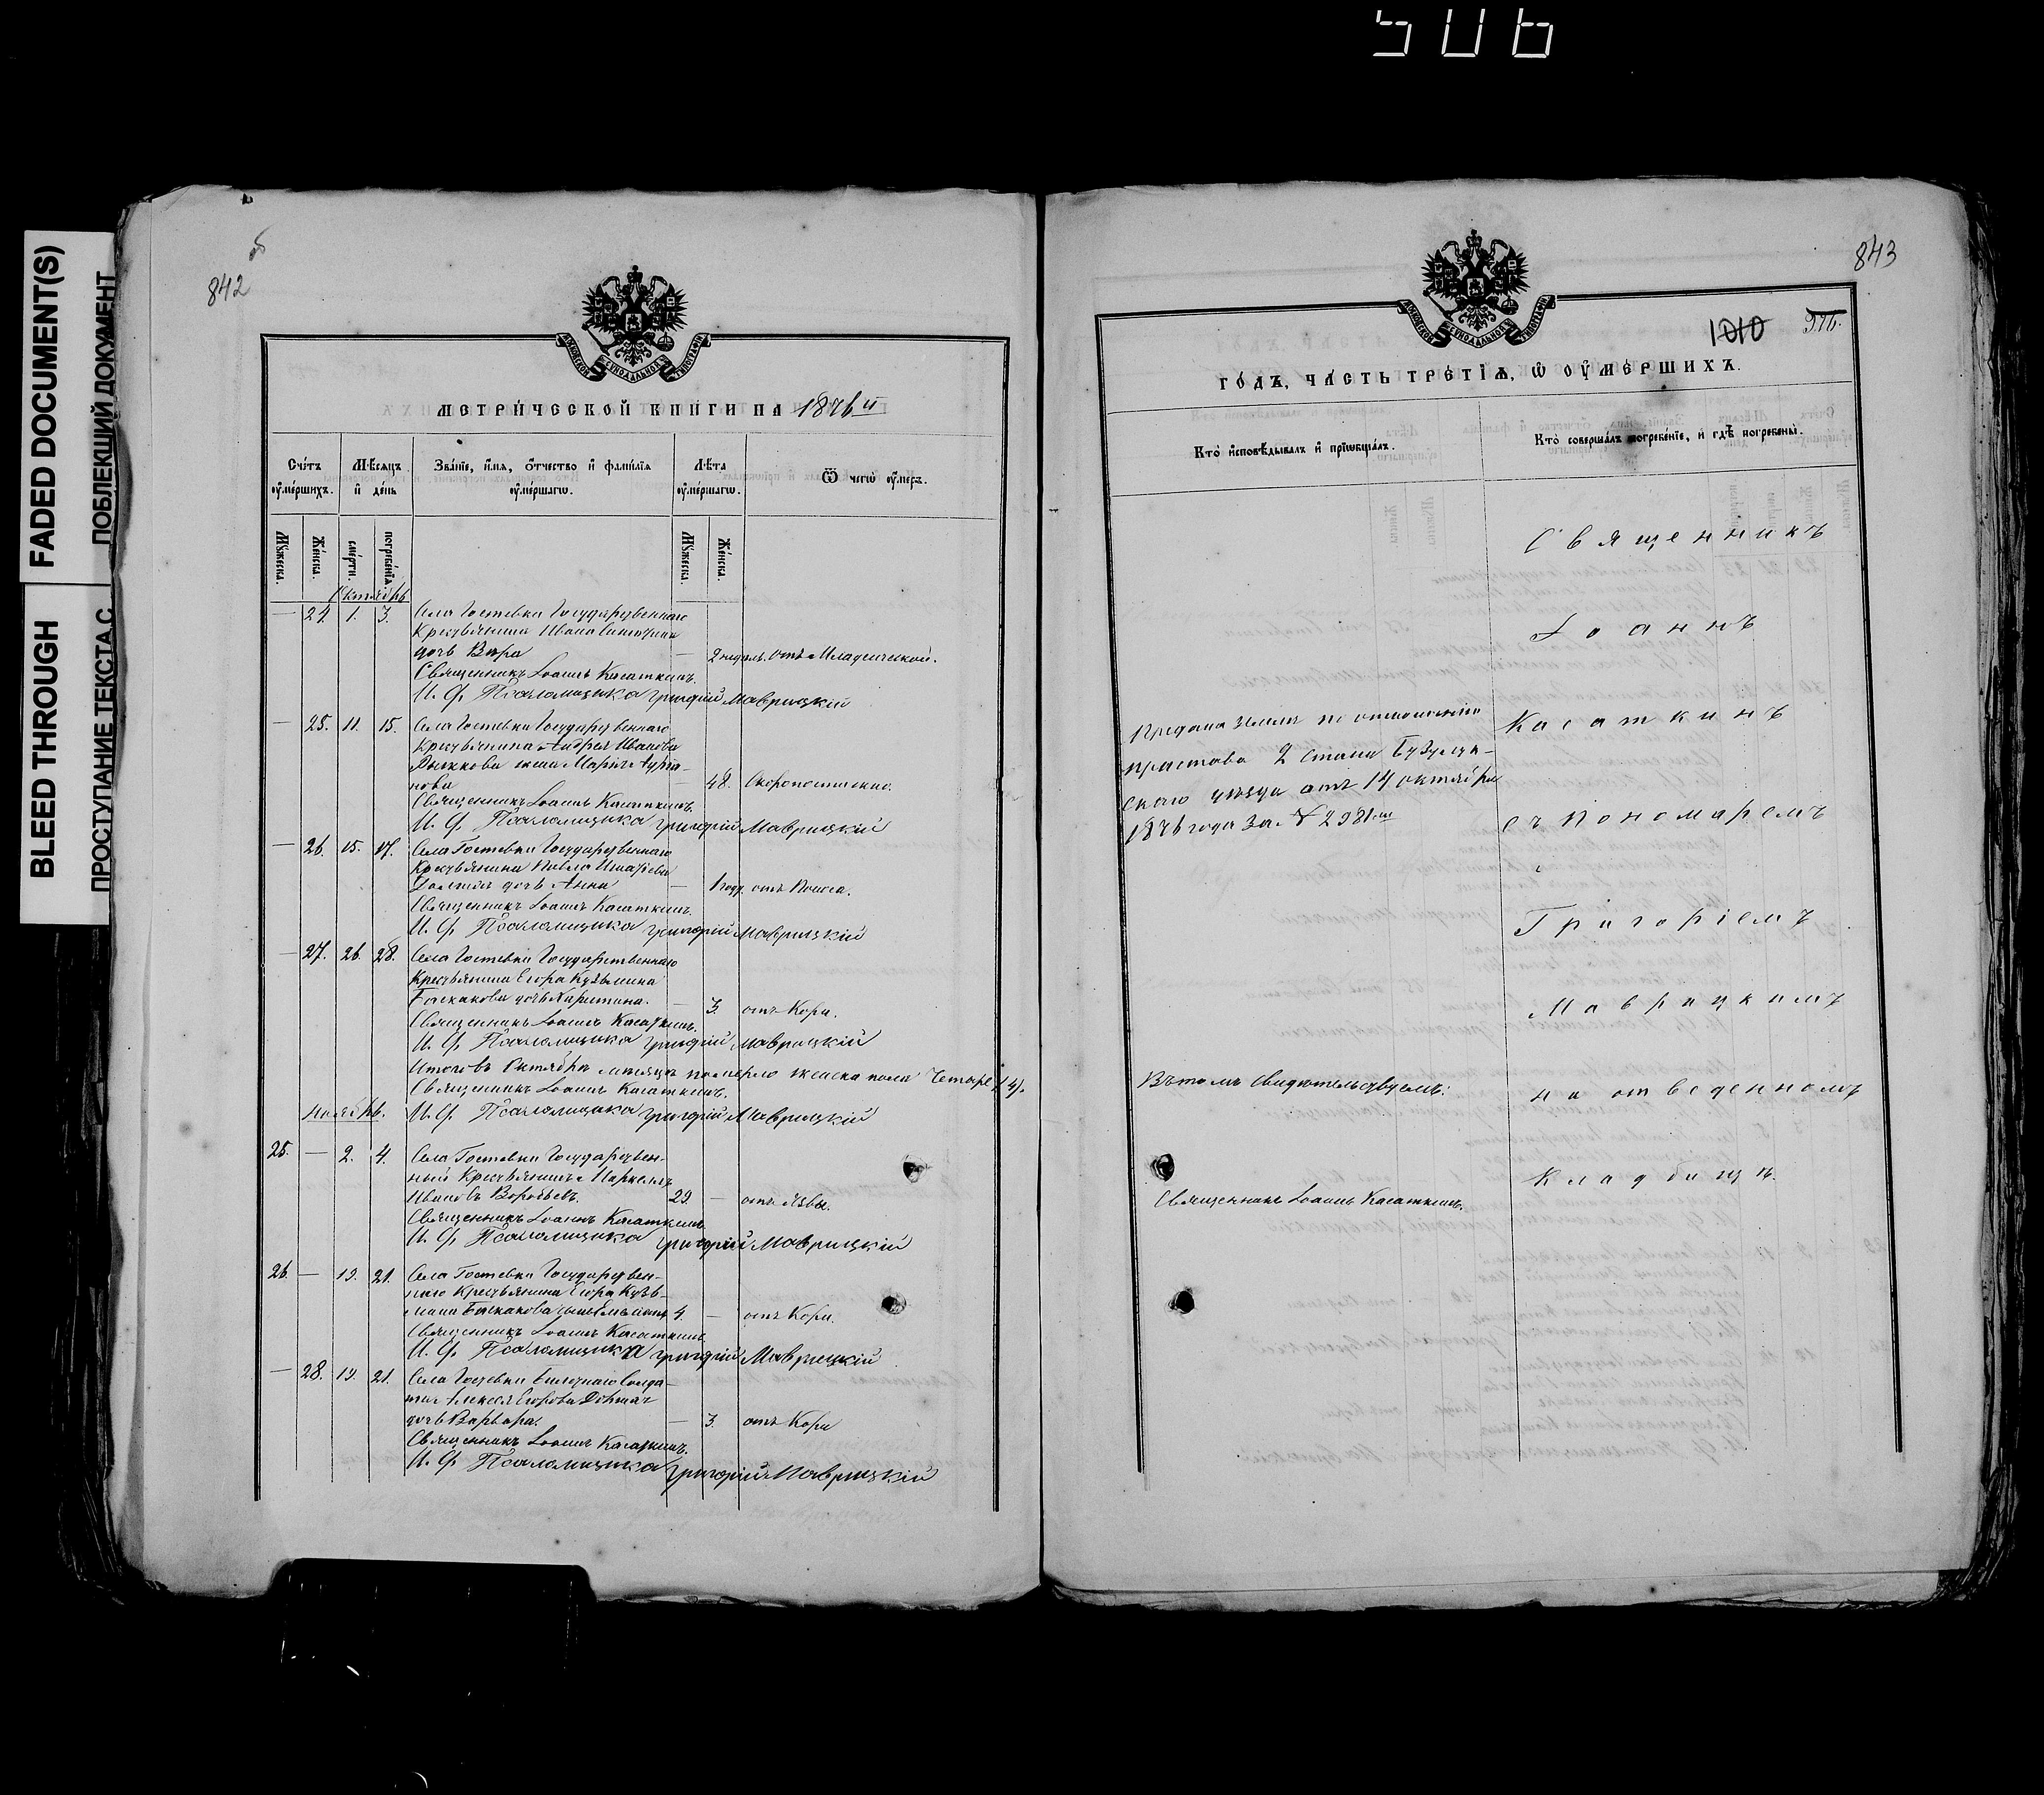 506
FADED DOCUMENT(S)
ПОБЛЕКШИЙ ДОКУМЕНТ
BLEED THROUGH
ПРОСТУПАНИЕ ТЕКСТА С
842
об
МЕТРИЧЕСКОЙ КНИГИ НА 1876 й
Счётъ оумершихъ.
Мѣсяцъ и день
Званіе, имя, отчество и фамилія оумершагѡ.
Лѣта оумершагѡ.
Ѿ чегѡ оумеръ.
Мужеска.
Женска.
смерти.
погребенія
Мужеска.
Женска.
Октябрь
— 24. 1. 3. Села Гостевки Государственнаго
Крестьянина Ивана
дочь Вѣра — 2 недѣль. отъ Младенческой.
Священникъ Іоаннъ Касаткинъ.
И. Ф. Псаломщика Григорій Маврицкій
— 25. 11. 15. Села Гостевки Государственнаго
Крестьянина Андрея Иванова
жена Марія
— 48. Скоропостижно.
Священникъ Іоаннъ Касаткинъ.
И. Ф. Псаломщика Григорій Маврицкій
— 26. 15. 17. Села Гостевки Государственнаго
Крестьянина Павла
дочь Анна — 1 год. отъ Поноса.
Священникъ Іоаннъ Касаткинъ.
И. Ф. Псаломщика Григорій Маврицкій
— 27. 26. 28. Села Гостевки Государственнаго
Крестьянина Егора Кузьмина
Баскакова дочь Харитина. — 3. отъ Кори.
Священникъ Іоаннъ Касаткинъ.
И. Ф. Псаломщика Григорій Маврицкій
Итого въ Октябрѣ мѣсяцѣ померло женска пола Четыре (4).
Священникъ Іоаннъ Касаткинъ.
Ноябрь. И. Ф. Псаломщика Григорій Маврицкій
25. — 2. 4. Села Гостевки Государствен-
ный Крестьянинъ Маркеллъ
Ивановъ Воробьевъ. 29 — отъ Язвы.
Священникъ Іоаннъ Касаткинъ
И. Ф. Псаломщика Григорій Маврицкій
26. — 19. 21. Села Гостевки Государствен-
наго Крестьянина Егора Кузь-
мина Баскакова сынъ 4. — отъ Кори.
Священникъ Іоаннъ Касаткинъ
И. Ф. Псаломщика Григорій Маврицкій
— 28. 19. 21. Села Гостевки Билетнаго Солда-
та Алексея Егорова
дочь Варвара. — 3. отъ Кори
Священникъ Іоаннъ Касаткинъ.
И. Ф. Псаломщика Григорій Маврицкій
843
1010
ГОДЪ, ЧАСТЬ ТРЕТІЯ, Ѡ ОУМЕРШИХЪ.
Кто исповѣдывалъ и пріѡбщалъ.
Кто совершалъ погребеніе, и гдѣ погребены.
Предана землѣ по отношенію
пристава 2 стана Бузулук-
скаго уѣзда отъ 14 октября
1876 года за № 2981 мъ
Въ томъ свидѣтельствуемъ:
Священникъ Іоаннъ Касаткинъ.
Священникъ
Іоаннъ
Касаткинъ
съ Пономаремъ
Григоріемъ
Маврицкимъ
на отведенномъ
Кладбищѣ.